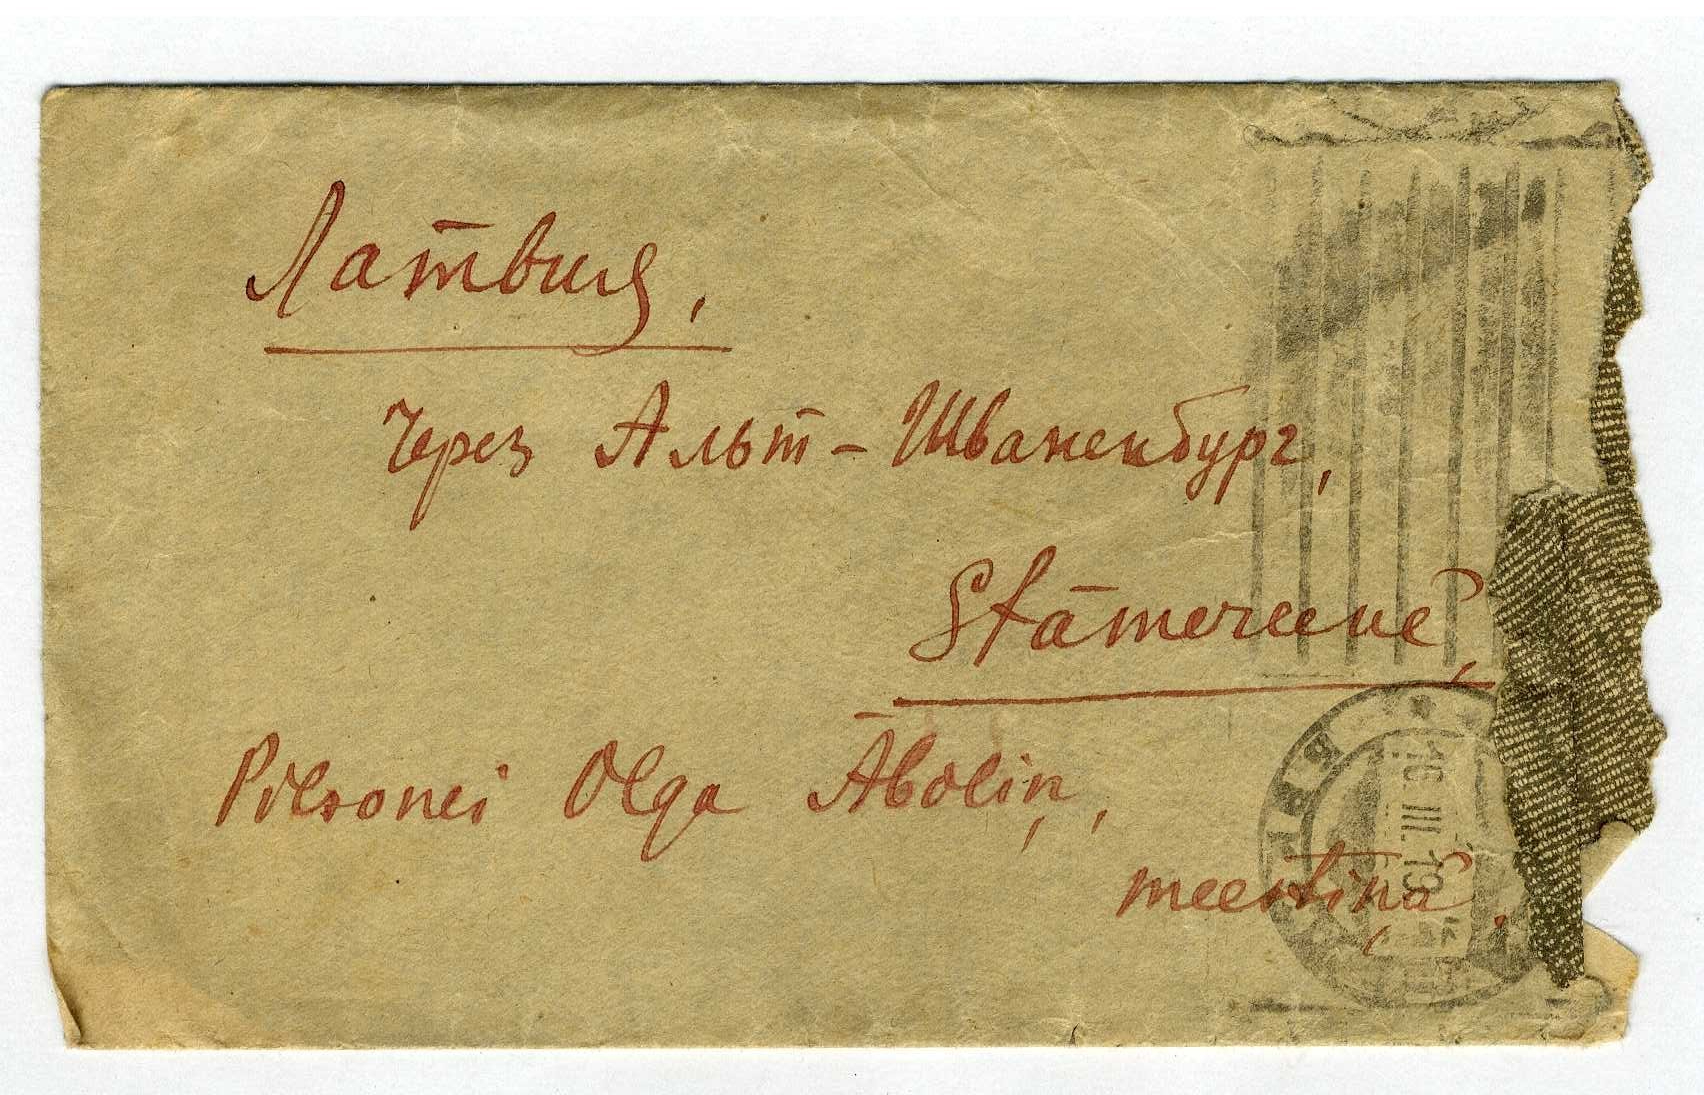 Латвия,
Через Альт-Шваненбург,
Stāmereenê,
Pilsonei Olga Āboliņ,
meestiņâ.
16. III. 19